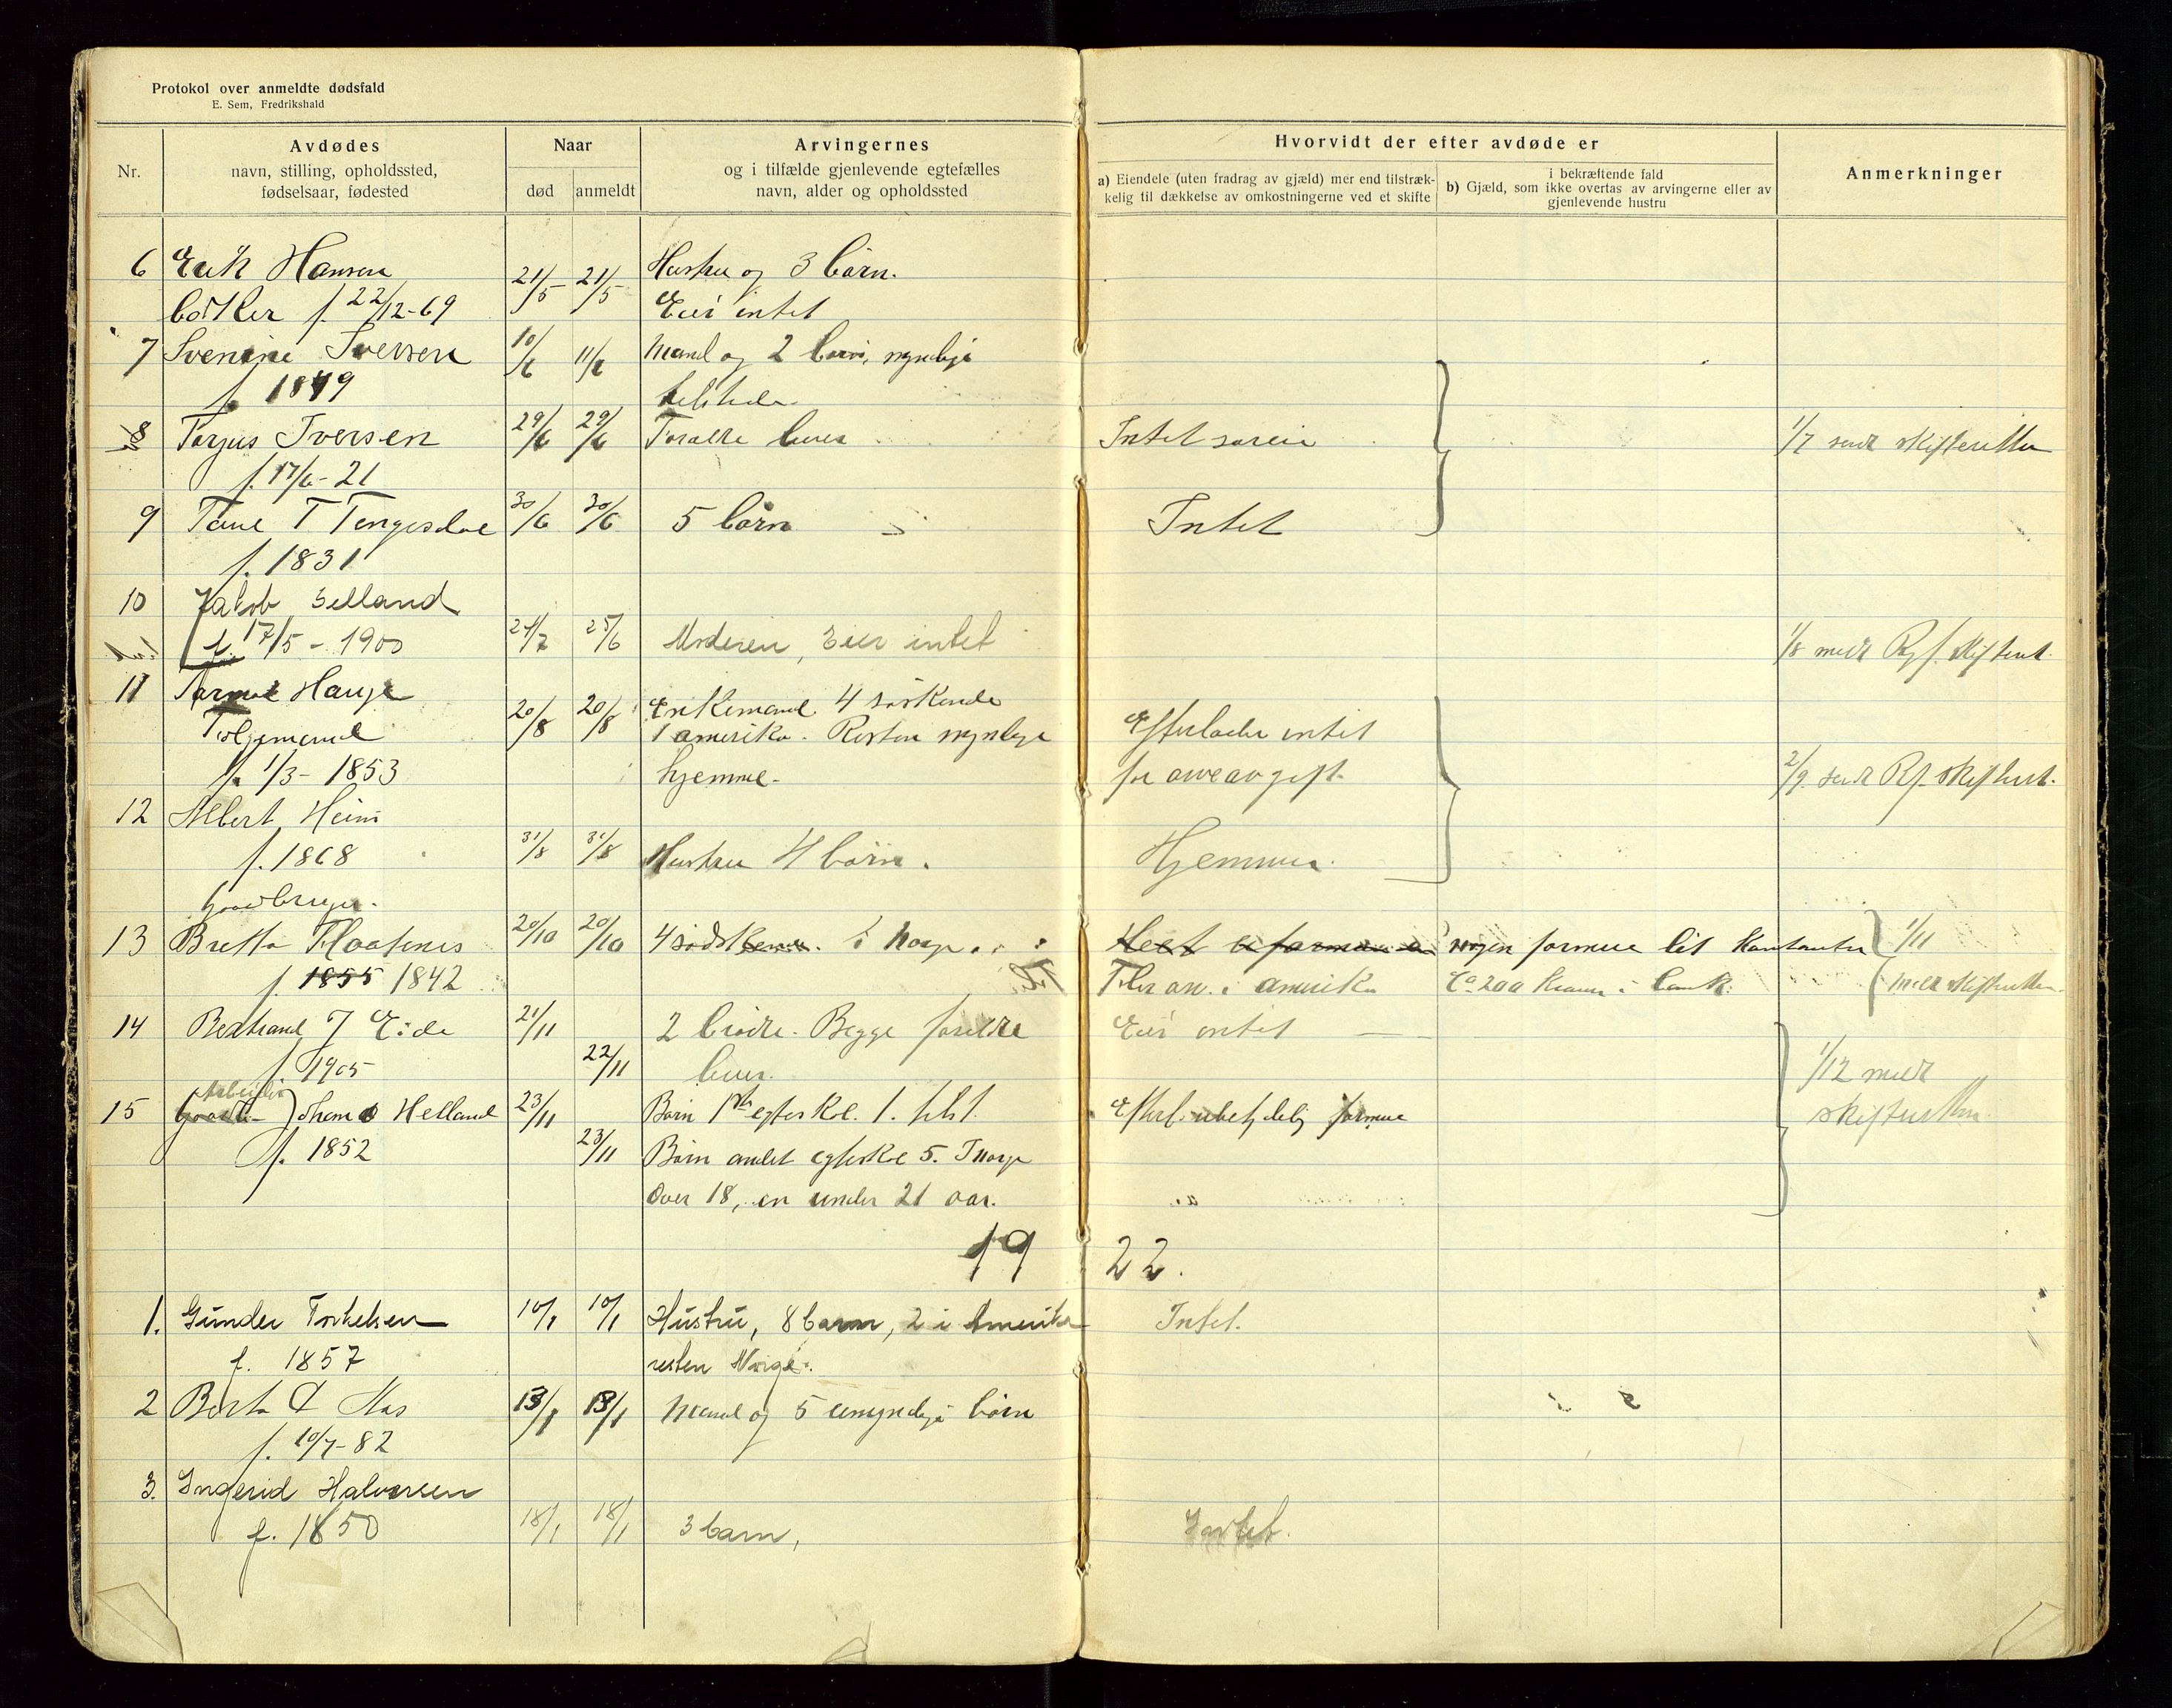 Protokol over anmeldte dødsfald
E. Sem, Fredrikshald
Nr.
Avdødes
navn, stilling, opholdssted,
fødselsaar, fødested
Naar
død anmeldt
Arvingernes
og i tilfælde gjenlevende egtefælles
navn, alder og opholdssted
Hvorvidt der efter avdøde er
a) Eiendele (uten fradrag av gjæld) mer end tilstræk-
kelig til dækkelse av omkostningerne ved et skifte
i bekræftende fald
b) Gjæld, som ikke overtas av arvingerne eller av
gjenlevende hustru
Anmerkninger
6 Erik Hansen 21/5 21/5 Hustru og 3 børn.
f. 22/12-69 Eier intet
7 Svenine Iversen 10/6 11/6 Mand og 2 børn, myndige
f. 1849
8 Torjus Iversen 29/6 29/6 Forældre lever Intet 1/7 sendt skifteretten
f. 17/6-21
9 Tane T Tengesdal 30/6 30/6 5 børn Intet
f. 1831
10 Jakob Selland
f. 17/5 - 1900 24/7 25/6 Moderen, Eier intet 1/8 meldt skifteret.
11 Hauge 20/8 20/8 Enkemand 4 søskende
Folgemand 1 amerika. Resten myndige Efterlader intet
f. 1/3 - 1853 hjemme. for arveavgift. 2/9 sendt Rf. skifteret.
12 Albert Heim
f. 1868 31/8 31/8 Hustru 4 børn. Hjemme.
Gaardbruger.
13 Bretta Floatenes 20/10 20/10 4 i Norge. nogen formue lit kontanter 1/11
f. 1855 1842 Flere i amerika Ca 200 kroner i bank. meldt skifteretten.
14 Bertrand J Eide 21/11 2 brødre. Begge foreldre Eier intet
f. 1905 22/11 lever. 1/12 meldt
Arbeider
15 Johan Helland 23/11 Børn 1ste egteskab. 1. Efterl. ubetydelig formue skifteretten.
f. 1852 23/11 Børn andet egteskab 5. I Norge
Over 18, en under 21 aar.
19 22.
1. Gunder Torkelsen 10/1 10/1 Hustru, 8 barn, 2 i Amerika Intet.
f. 1857 resten Norge.
2 Berta 13/1 13/1 Mand og 5 umyndige børn
f. 10/7-82
3. Ingerid Halvorsen
f. 1850 18/1 18/1 3 barn, Intet.